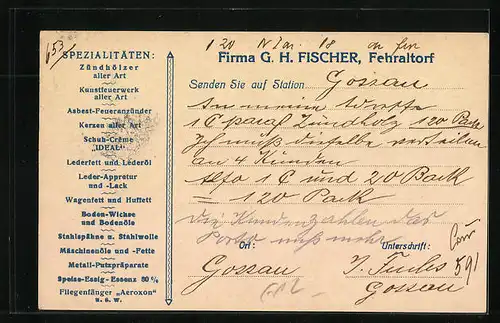 653
1 20 18
SPEZIALITÄTEN:
Zündhölzer
aller Art
Kunstfeuerwerk
aller Art
Asbest-Feueranzünder
Kerzen aller Art
Schuh-Crême
"IDEAL"
Lederfett und Lederöl
Leder-Appretur
und -Lack
Wagenfett und Huffett
Boden-Wichse
und Bodenöle
Stahlspähne u. Stahlwolle
Maschinenöle und -Fette
Metall-Putzpräparate
Speise-Essig-Essenz 80 %
Fliegenfänger "Aeroxon"
u. s. w.
Firma G. H. FISCHER, Fehraltorf
Senden Sie auf Station Gossau
An meine Adresse
1 C Zündholz 120 Pack
Ich muß dieselbe verteilen
an 4 Kunden
Also 1 C und 20 Pack
= 120 Pack
Die Kunden zahlen das
Porto
Ort: Unterschrift:
Gossau J. Fuchs
Gossau
591